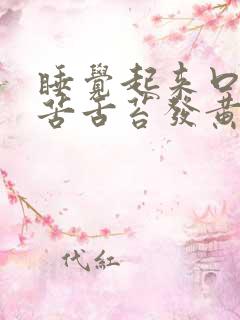 睡覺起來口
苦舌苔發黃
代紅